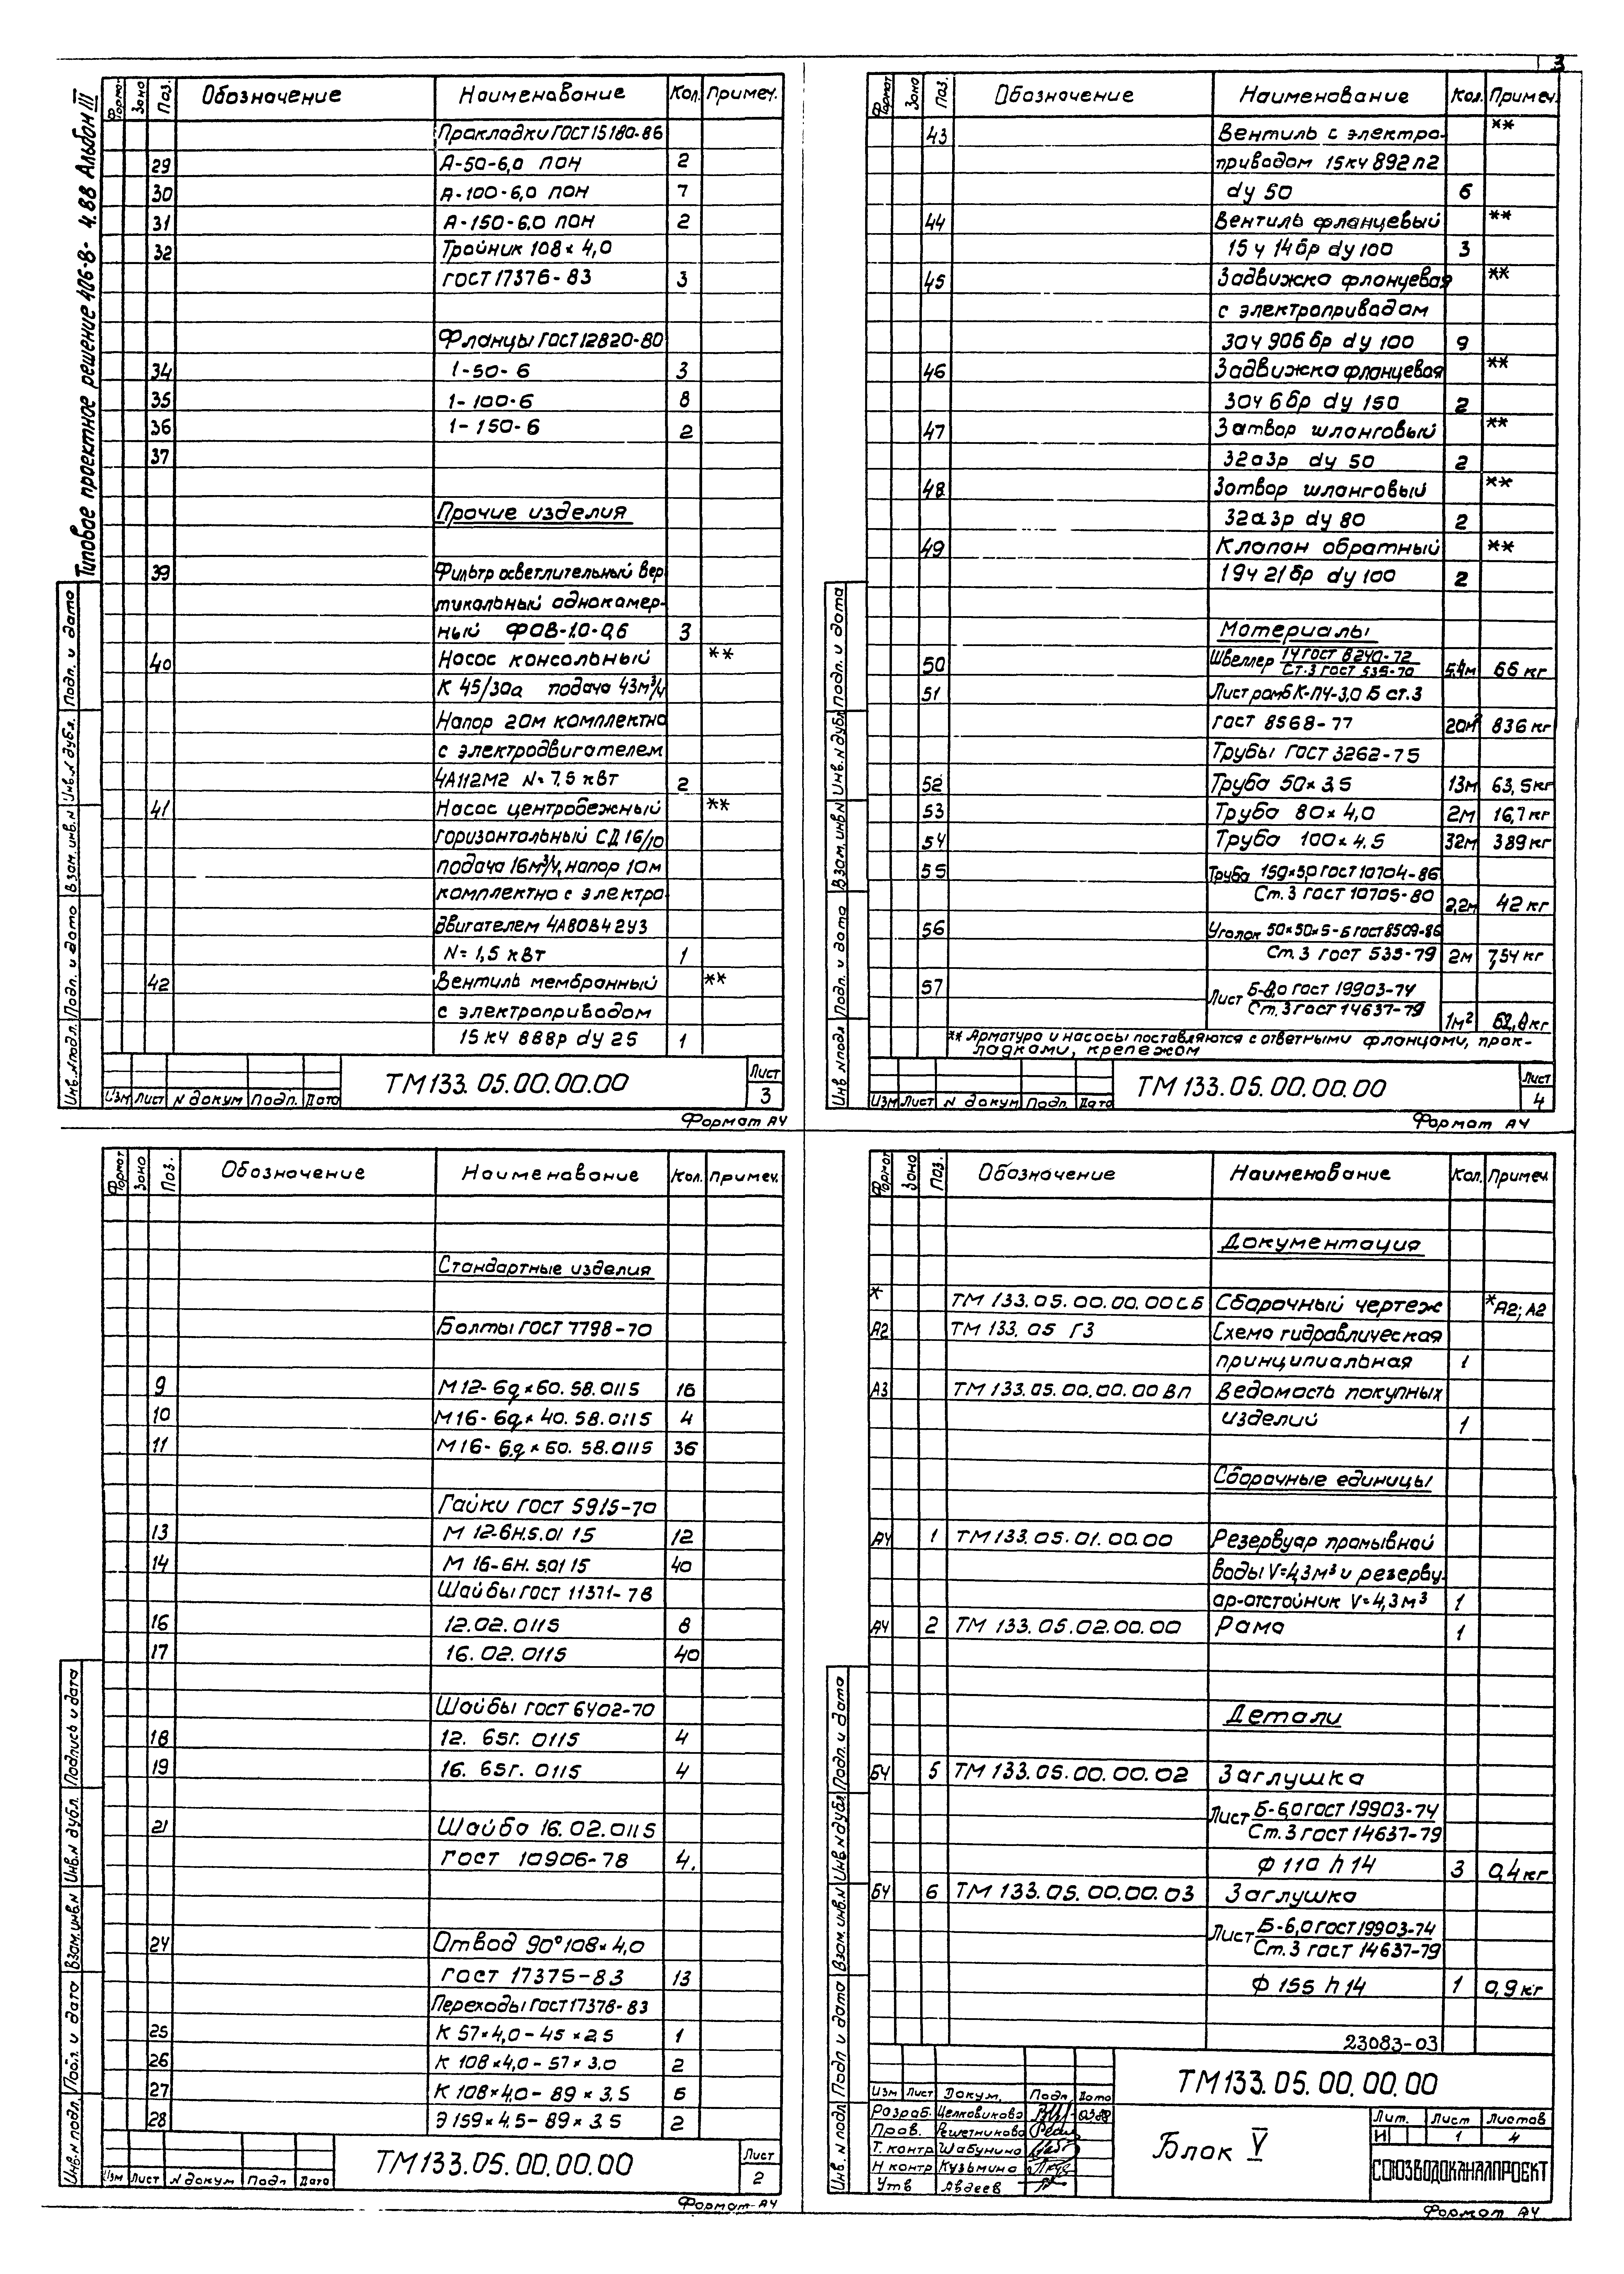 3
Типовое проектное решение 406-В- 4.88 Альбом III
Формат Зона Поз. Обозначение Наименование Кол. Примеч.
Прокладки ГОСТ 15180-86
29 А-50-6,0 ПОН 2
30 А-100-6,0 ПОН 7
31 А-150-6.0 ПОН 2
32 Тройник 108×4,0
ГОСТ 17376-83 3
Фланцы ГОСТ 12820-80
34 1-50-6 3
35 1-100-6 8
36 1-150-6 2
37
Прочие изделия
39 Фильтр осветлительный вер
тикальный однокамер-
ный ФОВ-1.0-0,6 3
40 Насос консольный **
К 45/30а подача 43м³/ч
Напор 20м комплектно
с электродвигателем
4А112М2 N=7.5 кВт 2
41 Насос центробежный **
горизонтальный СД 16/10
подача 16м³/ч, напор 10м
комплектно с электро
двигателем 4А80В42У3
N=1,5 кВт 1
42 Вентиль мембранный **
с электроприводом
15 кч 888р dу 25 1
Инв.N подл. Подп. и дата Взам. инв.N Инв.N дубл. Подп. и дата
Изм Лист N докум Подп. Дата
ТМ133.05.00.00.00
Лист
3
Формат А4
Формат Зона Поз. Обозначение Наименование Кол. Примеч.
43 Вентиль с электро- **
приводом 15кч 892п2
dу 50 6
44 Вентиль фланцевый **
15ч 14бр dу 100 3
45 Задвижка фланцевая **
с электроприводом
30ч 906бр dу 100 9
46 Задвижка фланцевая **
30ч 6бр dу 150 2
47 Затвор шланговый **
32а3р dу 50 2
48 Затвор шланговый **
32а3р dу 80 2
49 Клапан обратный **
19ч 21бр dу 100 2
Материалы
50 Швеллер 14 ГОСТ 8240-72
Ст.3 ГОСТ 535-70 5,4м 66 кг
51 Лист ромб К-ПЧ-3,0 Б ст.3
ГОСТ 8568-77 20м² 836 кг
Трубы ГОСТ 3262-75
52 Труба 50×3,5 13м 63,5кг
53 Труба 80×4,0 2м 16,7 кг
54 Труба 100×4.5 32м 389кг
55 Труба 159×5,0 ГОСТ 10704-86
Ст.3 ГОСТ 10705-80 2,2м 42 кг
56 Уголок 50×50×5-Б ГОСТ 8509-86
Ст.3 ГОСТ 535-79 2м 7,54 кг
57 Лист Б-8,0 ГОСТ 19903-74
Ст.3 ГОСТ 14637-79 1м² 62,8кг
** Арматура и насосы поставляются с ответными фланцами, прок-
ладками, крепежом
Инв N подл Подп. и дата Взам. инв N Инв. N дубл Подп. и дата
Изм Лист N докум Подп. Дата
ТМ133.05.00.00.00
Лист
4
Формат А4
Формат Зона Поз. Обозначение Наименование Кол. Примеч.
Стандартные изделия
Болты ГОСТ 7798-70
9 М12-6g×60.58.0115 16
10 М16-6g×40.58.0115 4
11 М16-6g×60.58.0115 36
Гайки ГОСТ 5915-70
13 М 12-6Н.5.0115 12
14 М 16-6Н.5.0115 40
Шайбы ГОСТ 11371-78
16 12.02.0115 8
17 16.02.0115 40
Шайбы ГОСТ 6402-70
18 12. 65Г. 0115 4
19 16. 65Г. 0115 4
21 Шайба 16.02.0115
ГОСТ 10906-78 4.
24 Отвод 90°108×4,0
ГОСТ 17375-83 13
Переходы ГОСТ 17378-83
25 К 57×4,0-45×2.5 1
26 К 108×4,0-57×3.0 2
27 К 108×4,0-89×3.5 6
28 Э 159×4.5-89×3.5 2
Инв.N подл. Подп. и дата Взам.инв.N Инв.N дубл. Подпись и дата
Изм Лист N докум Подп Дата
ТМ133.05.00.00.00
Лист
2
Формат-А4
Формат Зона Поз. Обозначение Наименование Кол. Примеч
Документация
* ТМ 133.05.00.00.00СБ Сборочный чертеж *А2; А2
А2 ТМ 133.05 Г3 Схема гидравлическая
принципиальная 1
А3 ТМ 133.05.00.00.00 ВП Ведомость покупных
изделий 1
Сборочные единицы
А4 1 ТМ133.05.01.00.00 Резервуар промывной
воды V=4,3м³ и резерву
ар-отстойник V=4,3м³ 1
А4 2 ТМ 133.05.02.00.00 Рама 1
Детали
БЧ 5 ТМ 133.05.00.00.02 Заглушка
Лист Б-6,0 ГОСТ 19903-74
Ст.3 ГОСТ 14637-79
Ф 110 h14 3 0,4кг
БЧ 6 ТМ 133.05.00.00.03 Заглушка
Лист Б-6,0 ГОСТ 19903-74
Ст.3 ГОСТ 14637-79
Ф 155 h14 1 0,9кг
23083-03
Инв. N подл Подп и дата Взам. инв.N Инв N дубл Подп. и дата
ТМ133.05.00.00.00
Изм Лист Докум. Подп Дата
Разраб. Целковикова
Пров. Решетникова
Т.контр Шабунина
Н контр Кузьмина
Утв Авдеев
Блок V
Лит. Лист Листов
И 1 4
СОЮЗВОДОКАНАЛПРОЕКТ
Формат А4